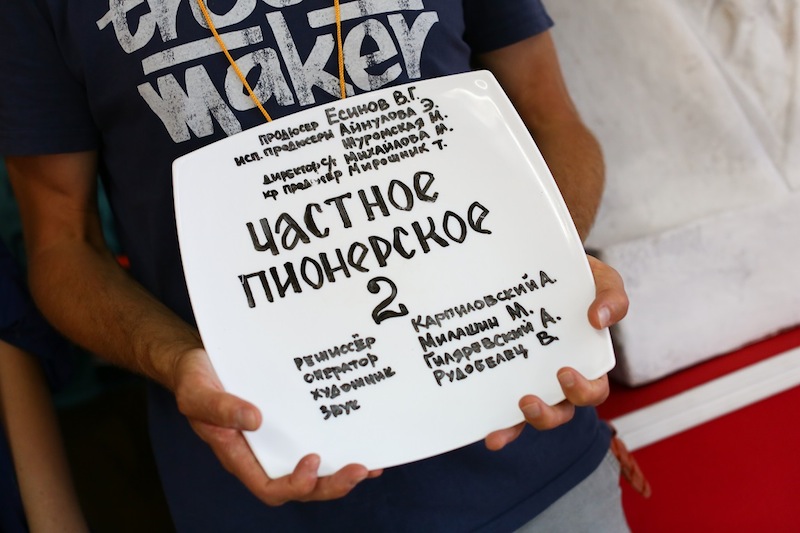 maker
ПРОДЮСЕР ЕСИНОВ В.Г.
ИСП. ПРОДЮСЕРЫ АЙНУЛОВА Э.
МУРОМСКАЯ И.
ДИРЕКТОР С/Г МИХАЙЛОВА М.
КР ПРОДЮСЕР МИРОШНИК Т.
ЧАСТНОЕ
ПИОНЕРСКОЕ
2
РЕЖИССЁР КАРПИЛОВСКИЙ А.
ОПЕРАТОР МИЛАШИН М.
ХУДОЖНИК ГИЛЯРЕВСКИЙ А.
ЗВУК РУДОБЕЛЕЦ В.